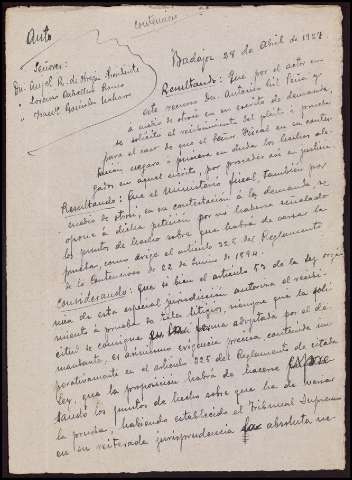 Contencioso
Auto
Badajoz 28 de Abril de 1927
Señores:
Dn. Angel R. de Presidente
" Lorenzo Caballero
" González
Resultando: Que por el actor en
este recurso Dn. Antonio Gil Peña y
a medio de otrosí en su escrito de demanda,
se solicita el recibimiento del pleito á prueba
para el caso de que el Señor Fiscal en su contes-
tación negara ó pusiera en duda los hechos ale-
gados en aquel escrito, por proceder así en justicia
Resultando: Que el Ministerio fiscal también por
medio de otrosí, en su contestación á la demanda, se
opone á dicha petición por no haberse señalado
los puntos de hecho sobre que habrá de versar la
prueba, como exige el artículo 325 del Reglamento
de lo Contencioso de 22 de Junio de 1894.
Considerando: Que si bien el artículo 53 de la ley orgá-
nica de esta especial jurisdicción autoriza el recibi-
miento á prueba de tales litigios, siempre que la soli-
citud se consigne en la forma adoptada por el de-
mandante, es asimismo exigencia precisa contenida im-
perativamente en el artículo 325 del Reglamento de citada
ley, que la proposición habrá de hacerse
sando los puntos de hecho sobre que ha de versar
la prueba, habiendo establecido el Tribunal Supremo
en su reiterada jurisprudencia absoluta ne-